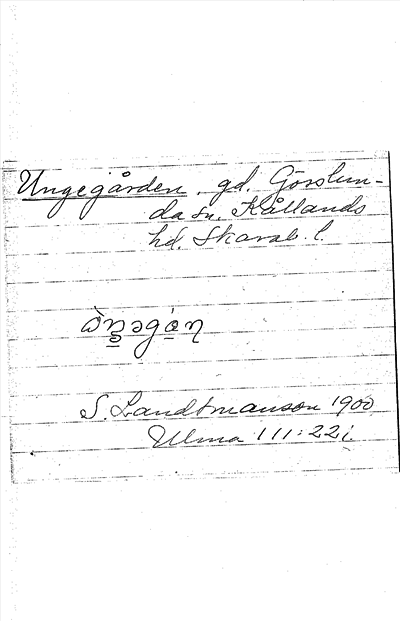 Ungegården, gd. Görslun-
da sn. Kållands
hd. Skarab. l.
S. Landtmanson 1900
Ulma 111:22i.